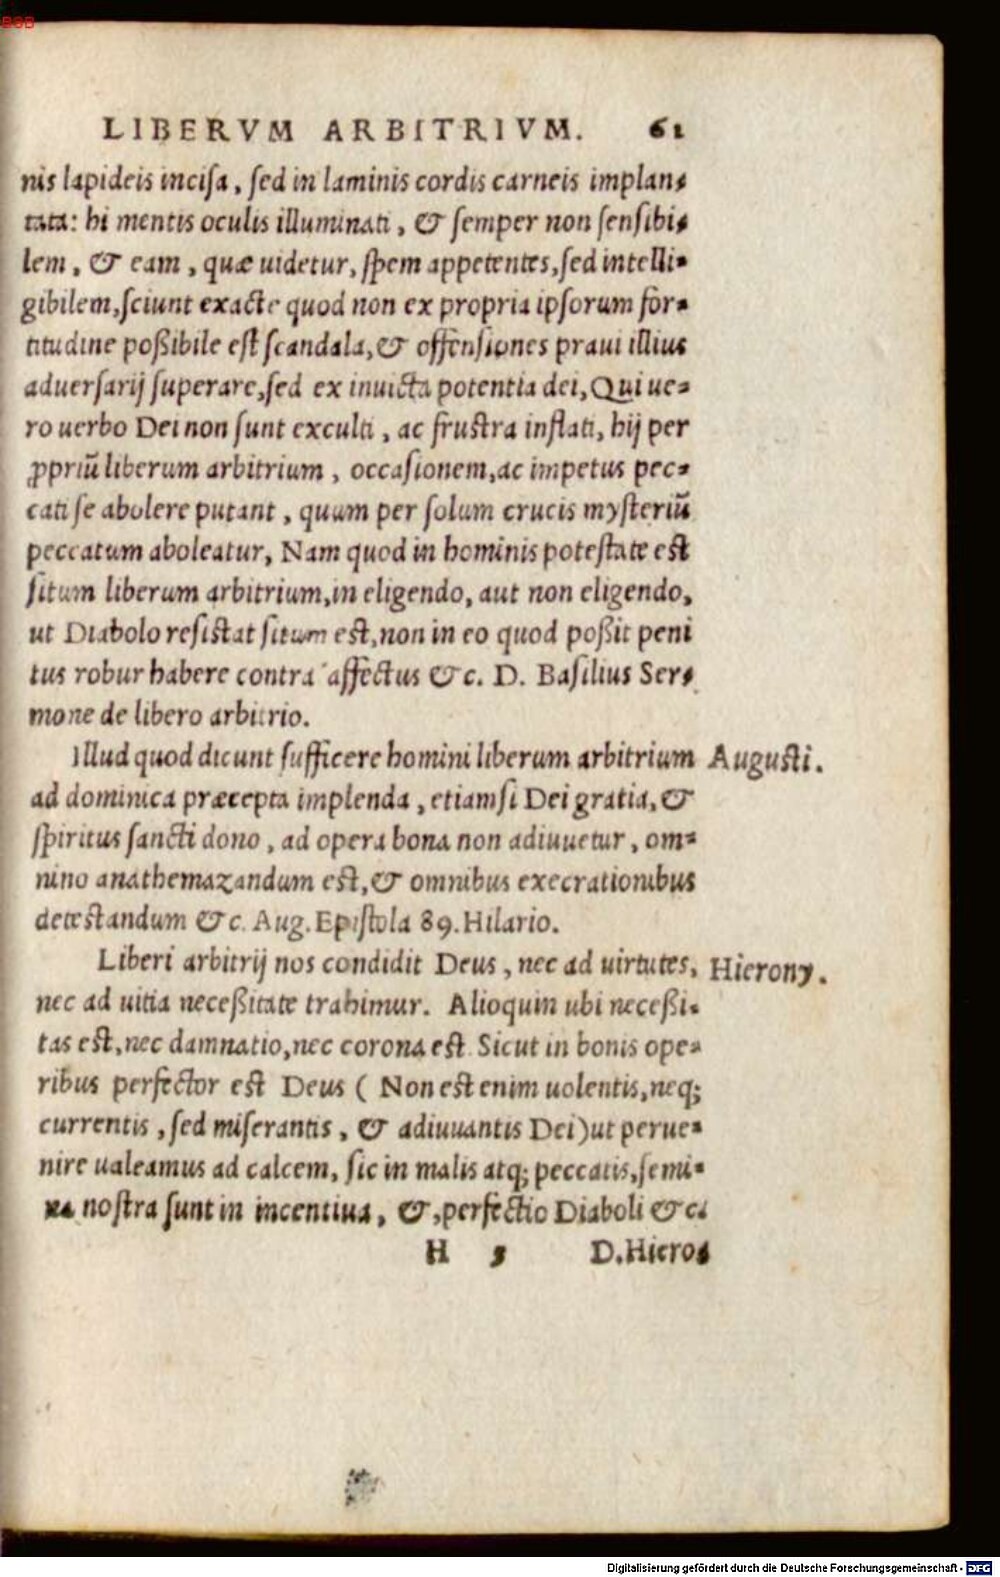 BSB
LIBERVM ARBITRIVM. 61
nis lapideis incisa, sed in laminis cordis carneis implan-
tata: hi mentis oculis illuminati, & semper non sensibi-
lem, & eam, quæ uidetur, spem appetentes, sed intelli-
gibilem, sciunt exacte quod non ex propria ipsorum for-
titudine poßibile est scandala, & offensiones praui illius
aduersarij superare, sed ex inuicta potentia dei, Qui ue-
ro uerbo Dei non sunt exculti, ac frustra inflati, hij per
ꝓpriũ liberum arbitrium, occasionem, ac impetus pec-
cati se abolere putant, quum per solum crucis mysteriũ
peccatum aboleatur, Nam quod in hominis potestate est
situm liberum arbitrium, in eligendo, aut non eligendo,
ut Diabolo resistat situm est, non in eo quod poßit peni
tus robur habere contra affectus &c. D. Basilius Ser-
mone de libero arbitrio.
Illud quod dicunt sufficere homini liberum arbitrium Augusti.
ad dominica præcepta implenda, etiamsi Dei gratia, &
spiritus sancti dono, ad opera bona non adiuuetur, om-
nino anathemazandum est, & omnibus execrationibus
detestandum &c. Aug. Epistola 89. Hilario.
Liberi arbitrij nos condidit Deus, nec ad uirtutes, Hierony.
nec ad uitia neceßitate trahimur. Alioquin ubi neceßi-
tas est, nec damnatio, nec corona est. Sicut in bonis ope-
ribus perfector est Deus ( Non est enim uolentis, neq;
currentis, sed miserantis, & adiuuantis Dei) ut perue-
nire ualeamus ad calcem, sic in malis atq; peccatis, semi-
na nostra sunt in incentiua, &, perfectio Diaboli &c.
H 5 D. Hiero-
Digitalisierung gefördert durch die Deutsche Forschungsgemeinschaft - DFG